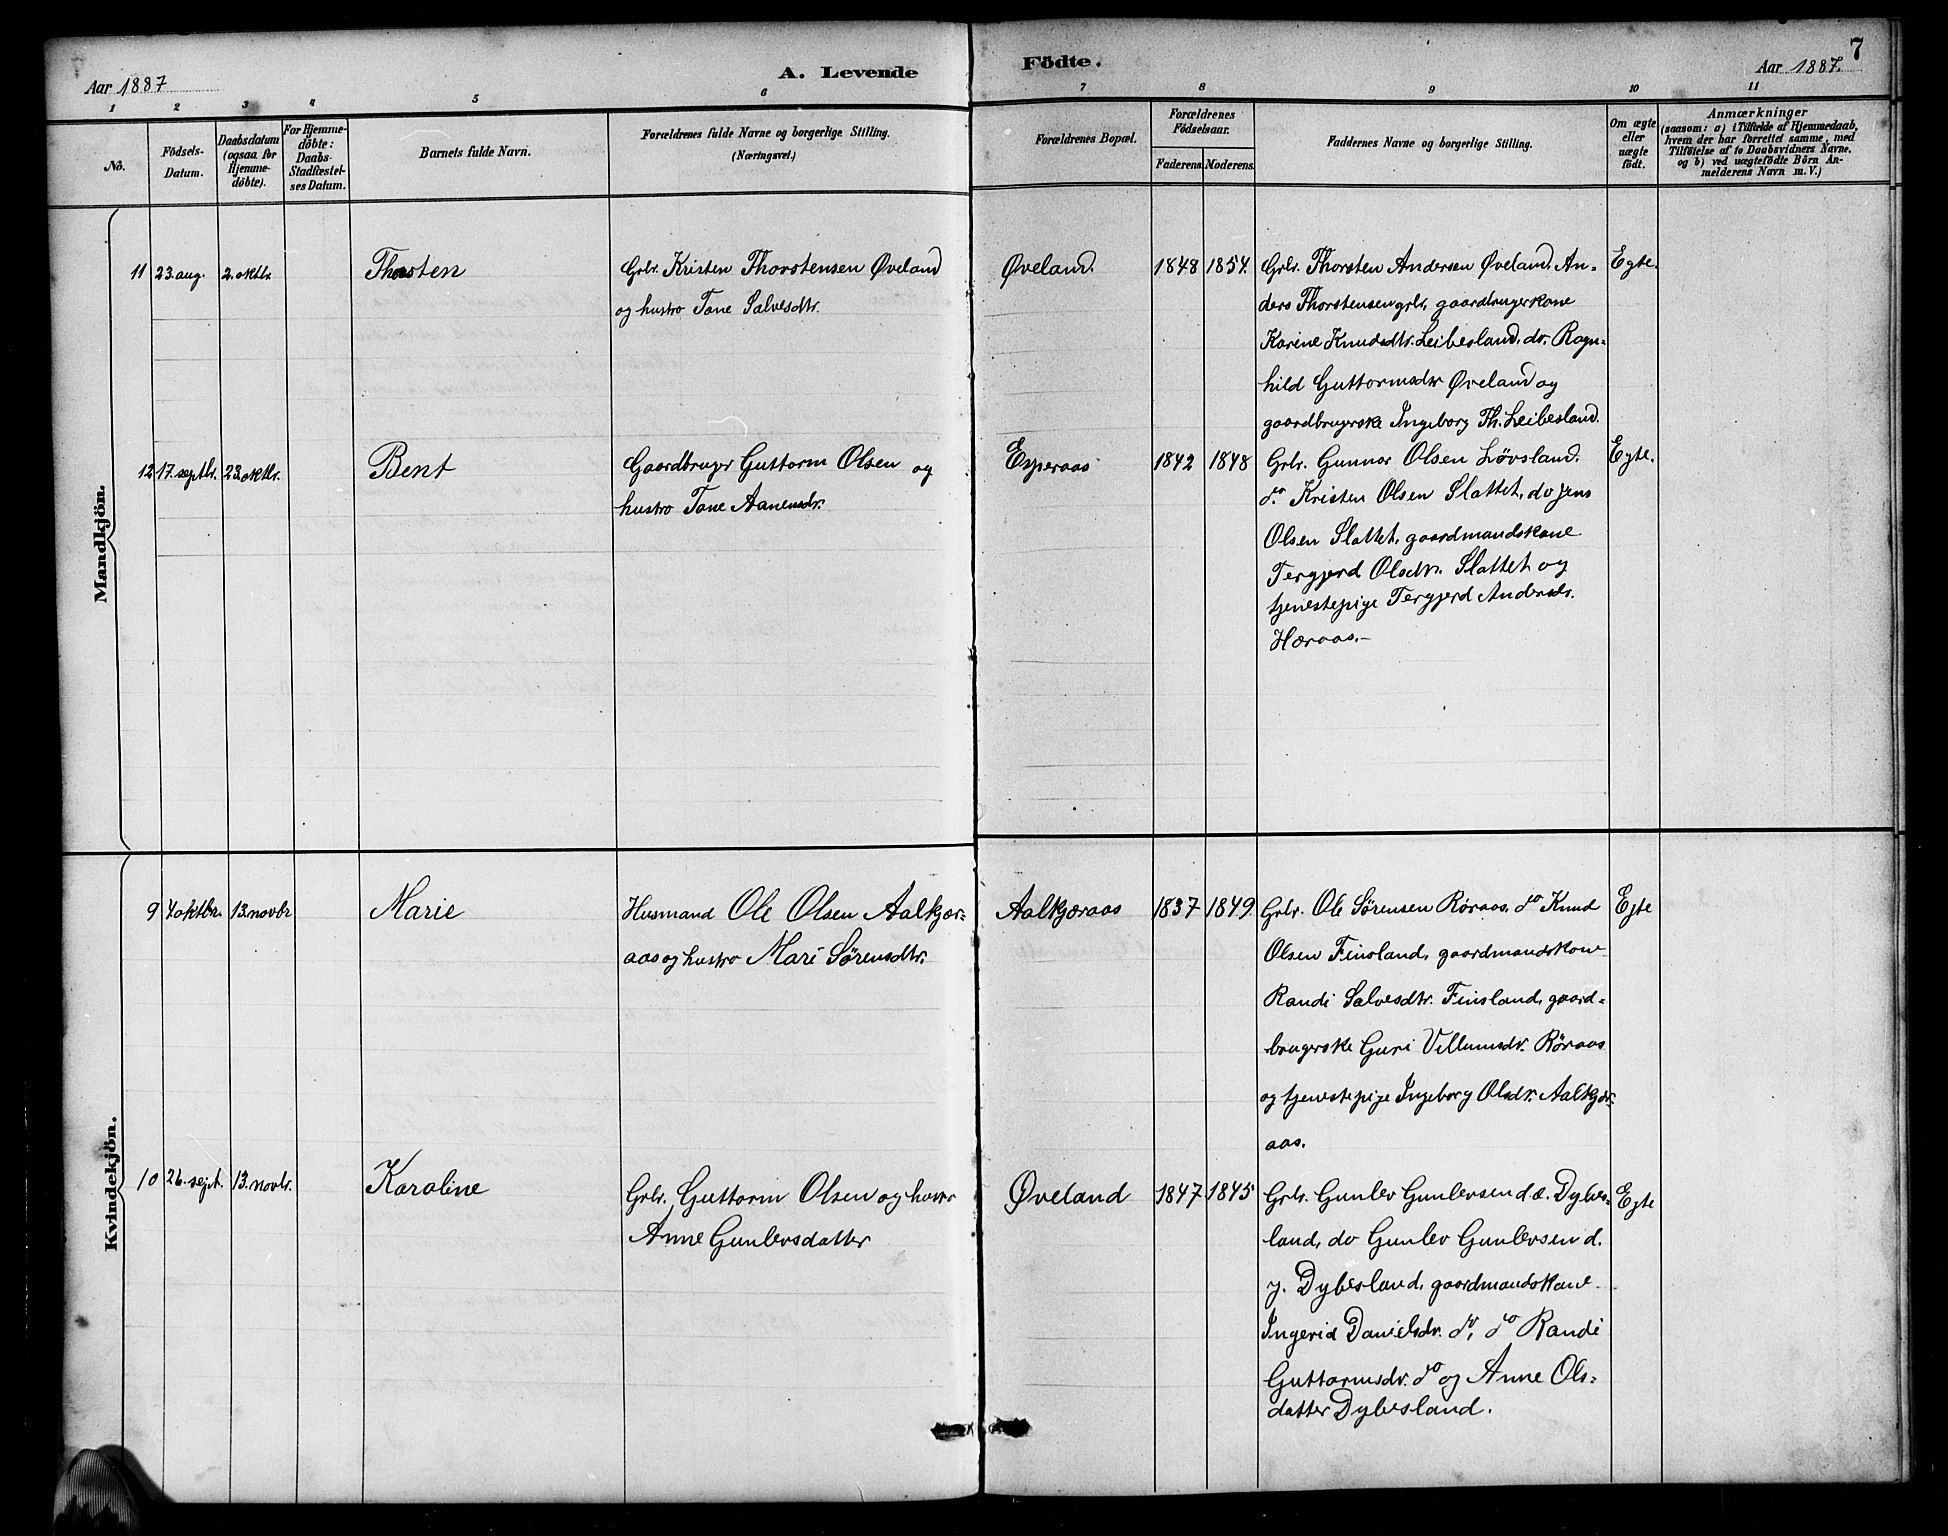 7
Aar 1887 A. Levende Födte. Aar 1887.
1 2 3 4 5 6 7 8 9 10 11
No.
Födsels-
Datum.
Daabsdatum
(ogsaa for
Hjemme-
döbte).
For Hjemme-
döbte:
Daabs-
Stadfæstel-
ses Datum.
Barnets fulde Navn.
Forældrenes fulde Navne og borgerlige Stilling.
(Næringsvei.)
Forældrenes Bopæl.
Forældrenes
Födselsaar.
Faderens. Moderens.
Faddernes Navne og borgerlige Stilling.
Om ægte
eller
uægte
født.
Anmærkninger
(saasom: a) i Tilfælde af Hjemmedaab,
hvem der har forrettet samme, med
Tilföielse af to Daabsvidners Navne,
og b) ved uægtefödte Börn An-
melderens Navn m. V.)
Mandkjön.
11 23. aug. 2. oktbr. Thorsten
Grbr. Kristen Thorstensen Øveland
og hustro Tone Salvesdtr.
Øveland. 1848 1854.
Grbr. Thorsten Andersen Øveland. An-
ders Thorstensen grbr, gaardbrugerkone
Karine Knudsdtr. Leibesland. do. Ragn-
hild Guttormsdtr Øveland og
gaardbrugerske Ingeborg Th. Leibesland.
Egte.
12 17. septbr. 23. oktbr. Bent
Gaardbruger Guttorm Olsen og
hustro Tone Aanensdr.
Esperaas 1842 1848
Grbr. Gunnar Olsen Løvsland.
do Kristen Olsen Slattet, do Jens
Olsen Slattet, gaardmandskone
Tergjerd Olsdtr. Slattet og
tjenestepige Tergjerd Andersdr.
Hæraas.-
Egte.
Kvindekjön.
9 4 oktbr. 13. novbr Marie
Husmand Ole Olsen Aalkjær-
aas og hustro Mari Sørensdtr.
Aalkjæraas 1837 1849.
Grbr. Ole Sørensen Røraas. do Knud
Olsen Finsland, gaardmandskone
Randi Salvesdtr. Finsland, gaard-
brugerske Guri Villumsdr. Røraas
og tjenestepige Ingeborg Olsdr. Aalkjær-
aas.
Egte
10 26. sept. 13. novbr. Karoline
Grbr. Guttorm Olsen og hustro
Anne Gunlevsdatter
Øveland 1847 1845
Grbr. Gunlev Gunlevsen d. æ. Dybes-
land, do Gunlev Gunlevsen d.
y. Dybesland, gaardmandskone
Ingerid Danielsdr. do, do Randi
Guttormsdr. do og Anne Ols-
datter Dybesland.
Egte